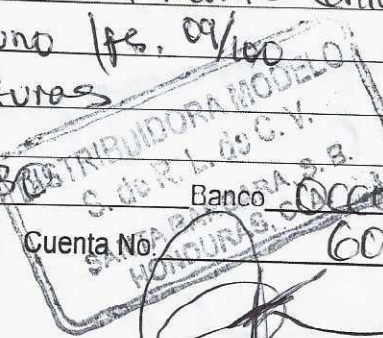 uno lps. 09/100
uras
DISTRIBUIDORA MODELO
S. de R. L. de C. V.
SANTA BARBARA, S. B.
HONDURAS, C. A.
Banco OCC
Cuenta No. 60